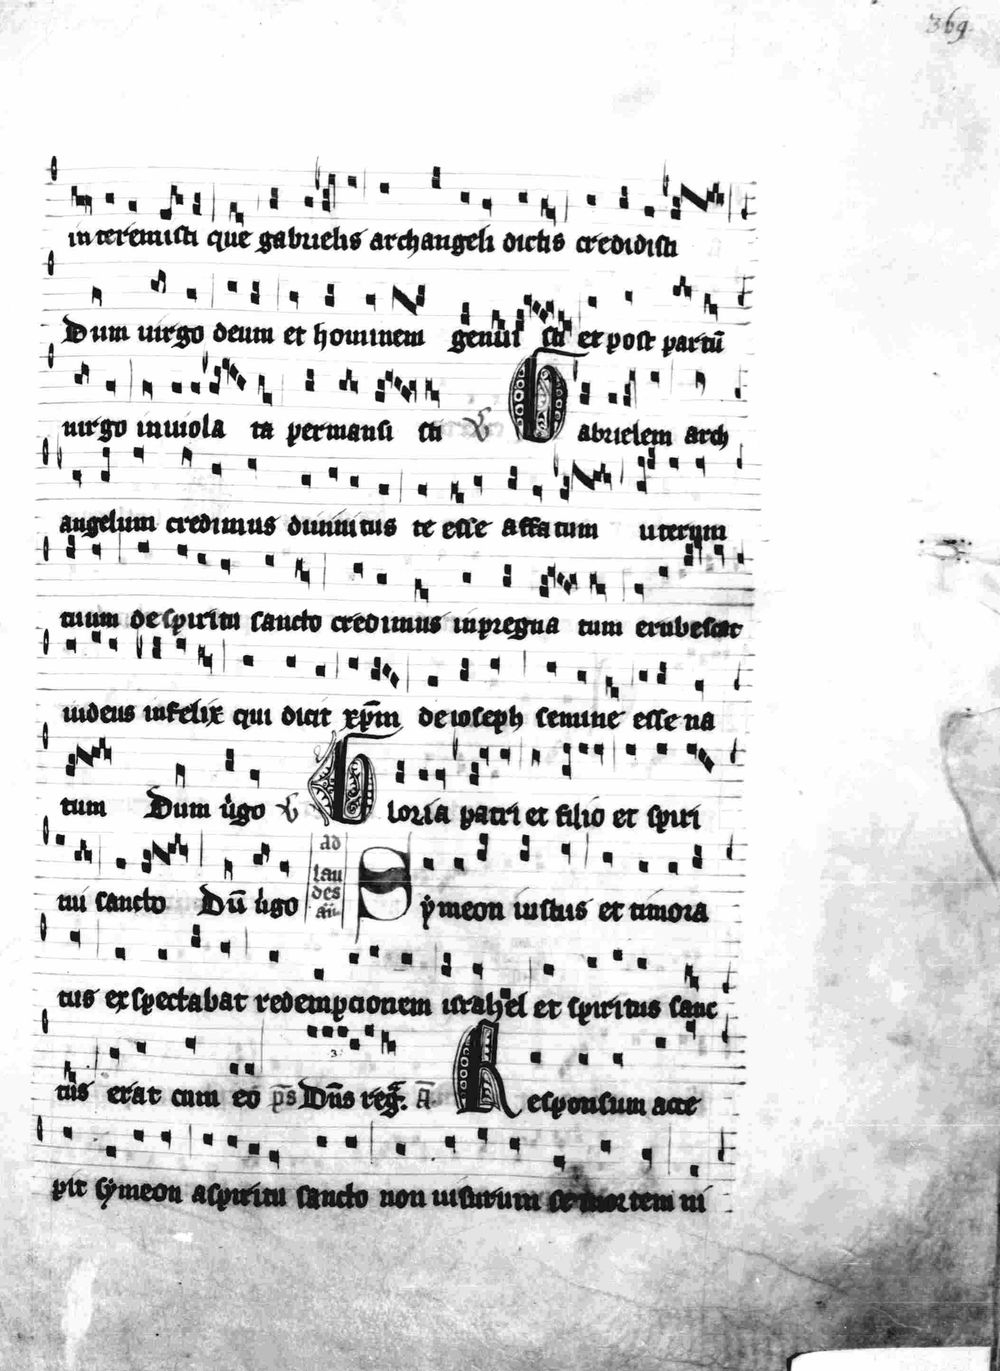 369
interemisti que gabrielis archangeli dictis credidisti
Dum uirgo deum et hominem genui sti et post partū
uirgo inuiola ta permansi sti ℣ Gabrielem arch
angelum credimus diuinitus te esse affatum uterum
tuum de spiritu sancto credimus inpregna tum erubescat
iudeus infelix qui dicit xp̄m de ioseph semine esse na
tum Dum ũgo ℣ Gloria patri et filio et spiri
tui sancto Dū ũgo ad laudes añ Symeon iustus et timora
tus exspectabat redempcionem israhel et spiritus sanc
tus erat cum eo p̄s Dn̄s reg̃. A̅ Responsum acce
pit symeon a spiritu sancto non uisurum se mortem ni